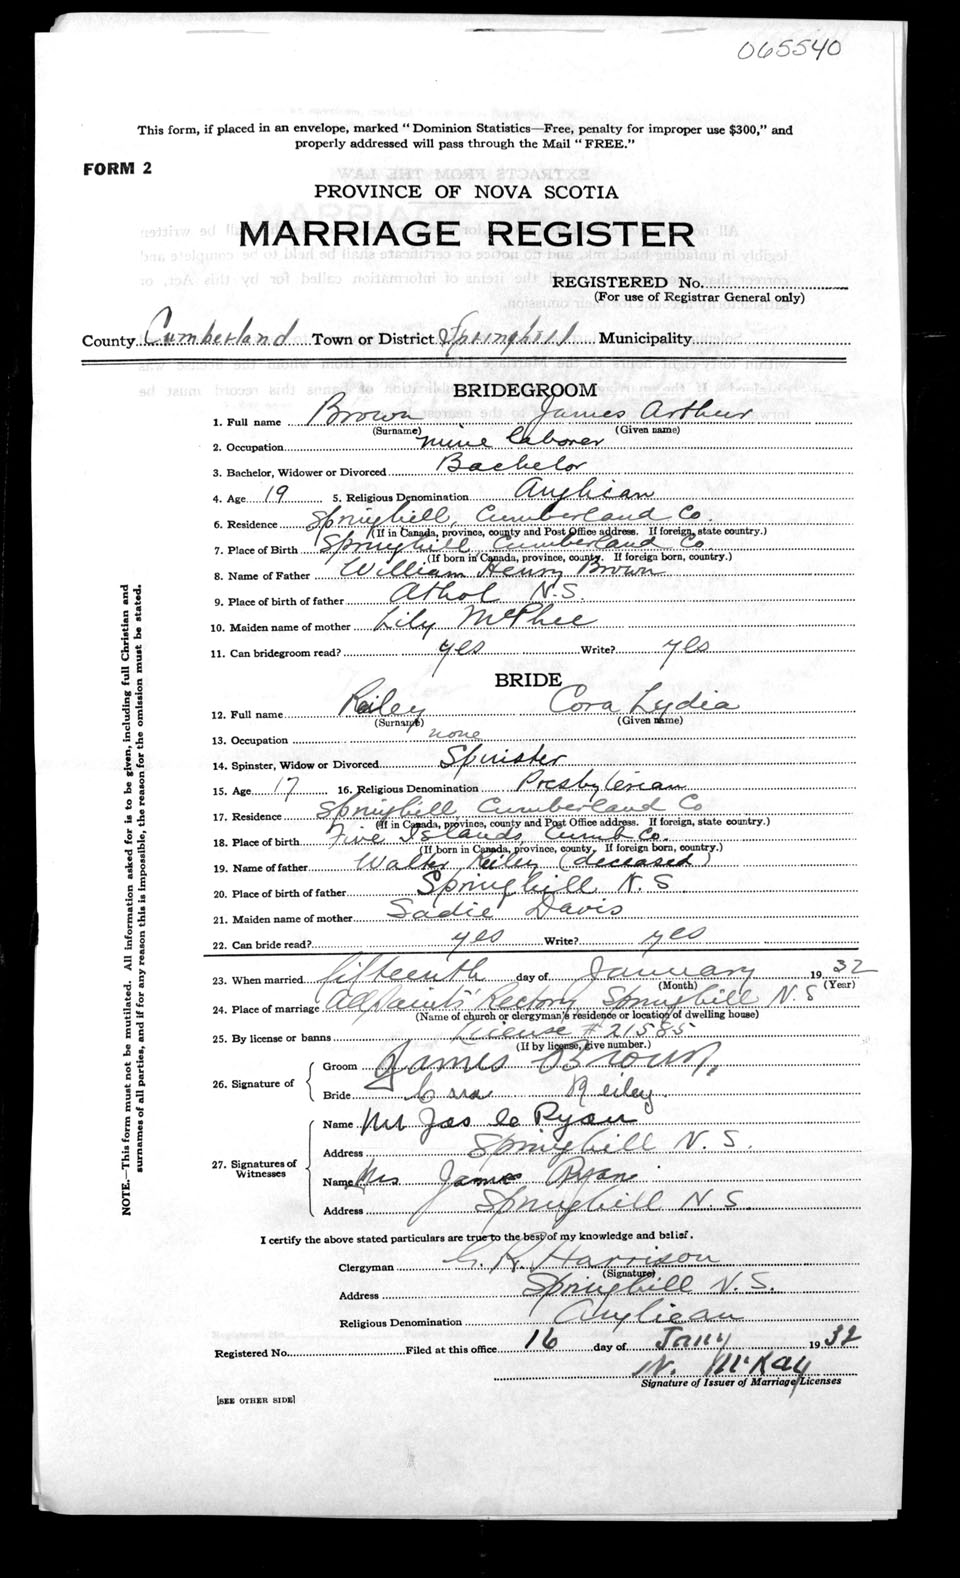 065540
This form, if placed in an envelope, marked "Dominion Statistics—Free, penalty for improper use $300," and
properly addressed will pass through the Mail "FREE."
FORM 2
PROVINCE OF NOVA SCOTIA
MARRIAGE REGISTER
REGISTERED No.
(For use of Registrar General only)
County Cumberland Town or District Springhill Municipality
BRIDEGROOM
1. Full name Brown James Arthur
(Surname) (Given name)
2. Occupation mine laborer
3. Bachelor, Widower or Divorced Bachelor
4. Age 19 5. Religious Denomination Anglican
6. Residence Springhill, Cumberland Co.
(If in Canada, province, county and Post Office address. If foreign, state country.)
7. Place of Birth Springhill Cumberland Co
(If born in Canada, province, county. If foreign born, country.)
8. Name of Father William Henry Brown
9. Place of birth of father Athol N.S.
10. Maiden name of mother Lily McPhee
11. Can bridegroom read? yes Write? yes
BRIDE
12. Full name Reiley Cora Lydia
(Surname) (Given name)
13. Occupation none
14. Spinster, Widow or Divorced Spinster
15. Age 17 16. Religious Denomination Presbyterian
17. Residence Springhill, Cumberland Co
(If in Canada, province, county and Post Office address. If foreign, state country.)
18. Place of birth Five Islands, Cumb Co.
(If born in Canada, province, county. If foreign born, country.)
19. Name of father Walter Reiley (deceased)
20. Place of birth of father Springhill N.S
21. Maiden name of mother Sadie Davis
22. Can bride read? yes Write? yes
23. When married fifteenth day of January 19 32
(Month) (Year)
24. Place of marriage All Saints' Rectory Springhill N.S
(Name of church or clergyman's residence or location of dwelling house)
25. By license or banns License # 21585
(If by license, give number.)
26. Signature of
Groom James Brown,
Bride Cora Reiley.
27. Signatures of Witnesses
Name Mr Jas Ryan
Address Springhill N.S.
Name Mrs James Ryan
Address Springhill N.S
I certify the above stated particulars are true to the best of my knowledge and belief.
Clergyman G. R. Harrison
(Signature)
Address Springhill N.S.
Religious Denomination Anglican
Registered No. Filed at this office 16 day of Jany 19 32
N. McKay
Signature of Issuer of Marriage Licenses
[SEE OTHER SIDE]
NOTE.—This form must not be mutilated. All information asked for is to be given, including full Christian and
surnames of all parties, and if for any reason this is impossible, the reason for the omission must be stated.